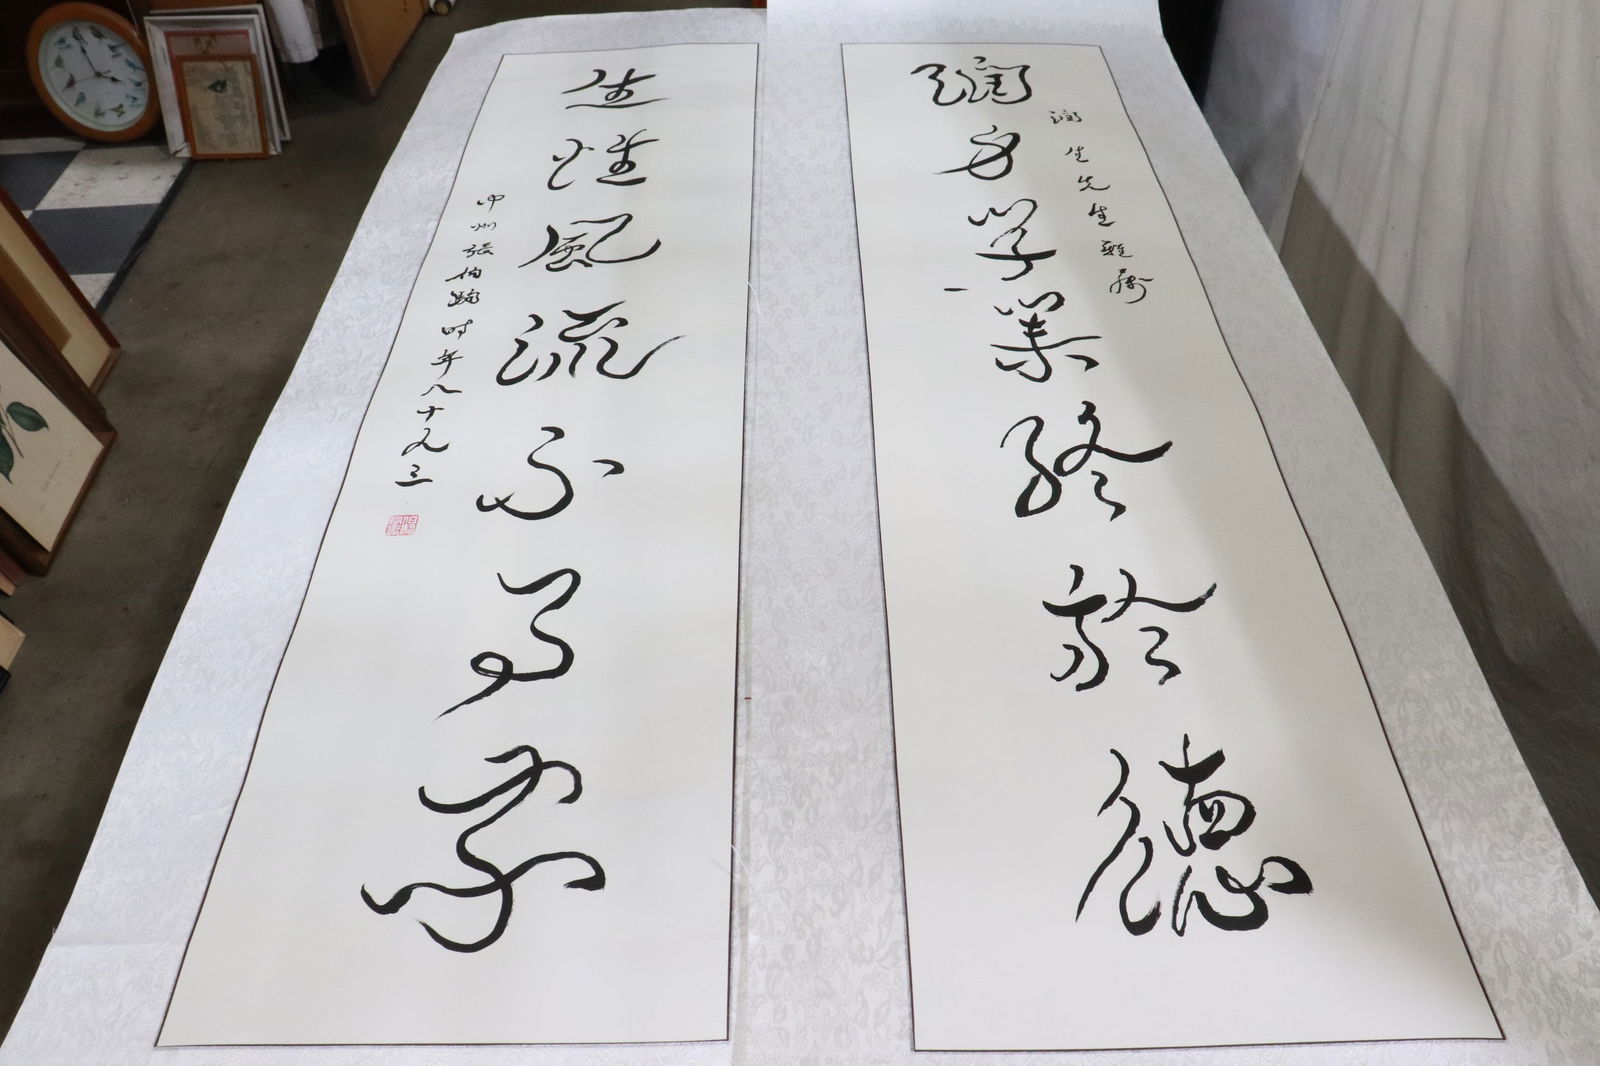 潤身學業終於德
潤生先生雅屬
生性風流不可家
中州張伯駒時年八十又三